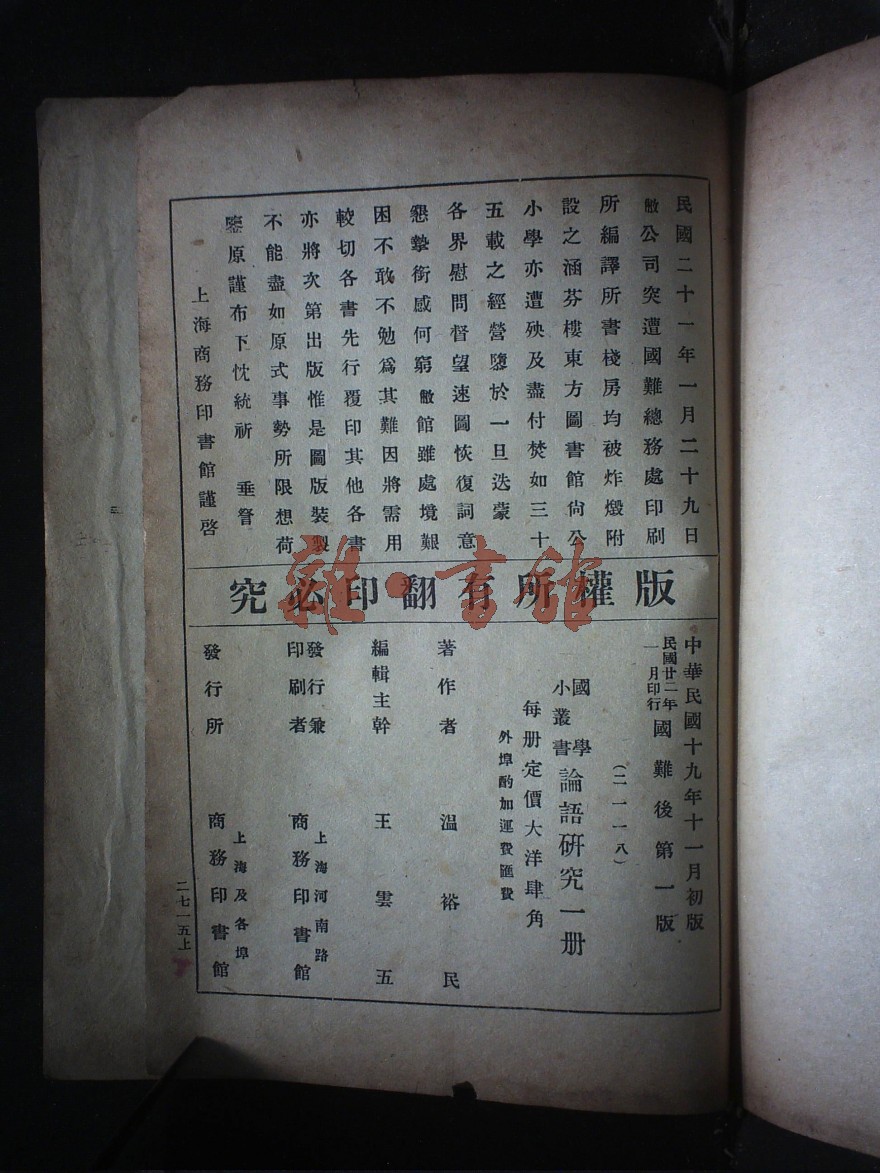 民國二十一年一月二十九日
敝公司突遭國難總務處印刷
所編譯所書棧房均被炸燬附
設之涵芬樓東方圖書館尙公
小學亦遭殃及盡付焚如三十
五載之經營隳於一旦迭蒙
各界慰問督望速圖恢復詞意
懇摯銜感何窮敝館雖處境艱
困不敢不勉爲其難因將需用
較切各書先行覆印其他各書
亦將次第出版惟是圖版裝製
不能盡如原式事勢所限想荷
鑒原謹布下忱統祈 垂詧
上海商務印書館謹啓
版權所有翻印必究
中華民國十九年十一月初版
民國廿二年一月印行 國難後第一版
(二一一八)
國學小叢書 論語研究一册
每册定價大洋肆角
外埠酌加運費匯費
著作者 温裕民
編輯主幹 王雲五
發行兼印刷者 上海河南路 商務印書館
發行所 上海及各埠 商務印書館
二七一五上
雜·書館